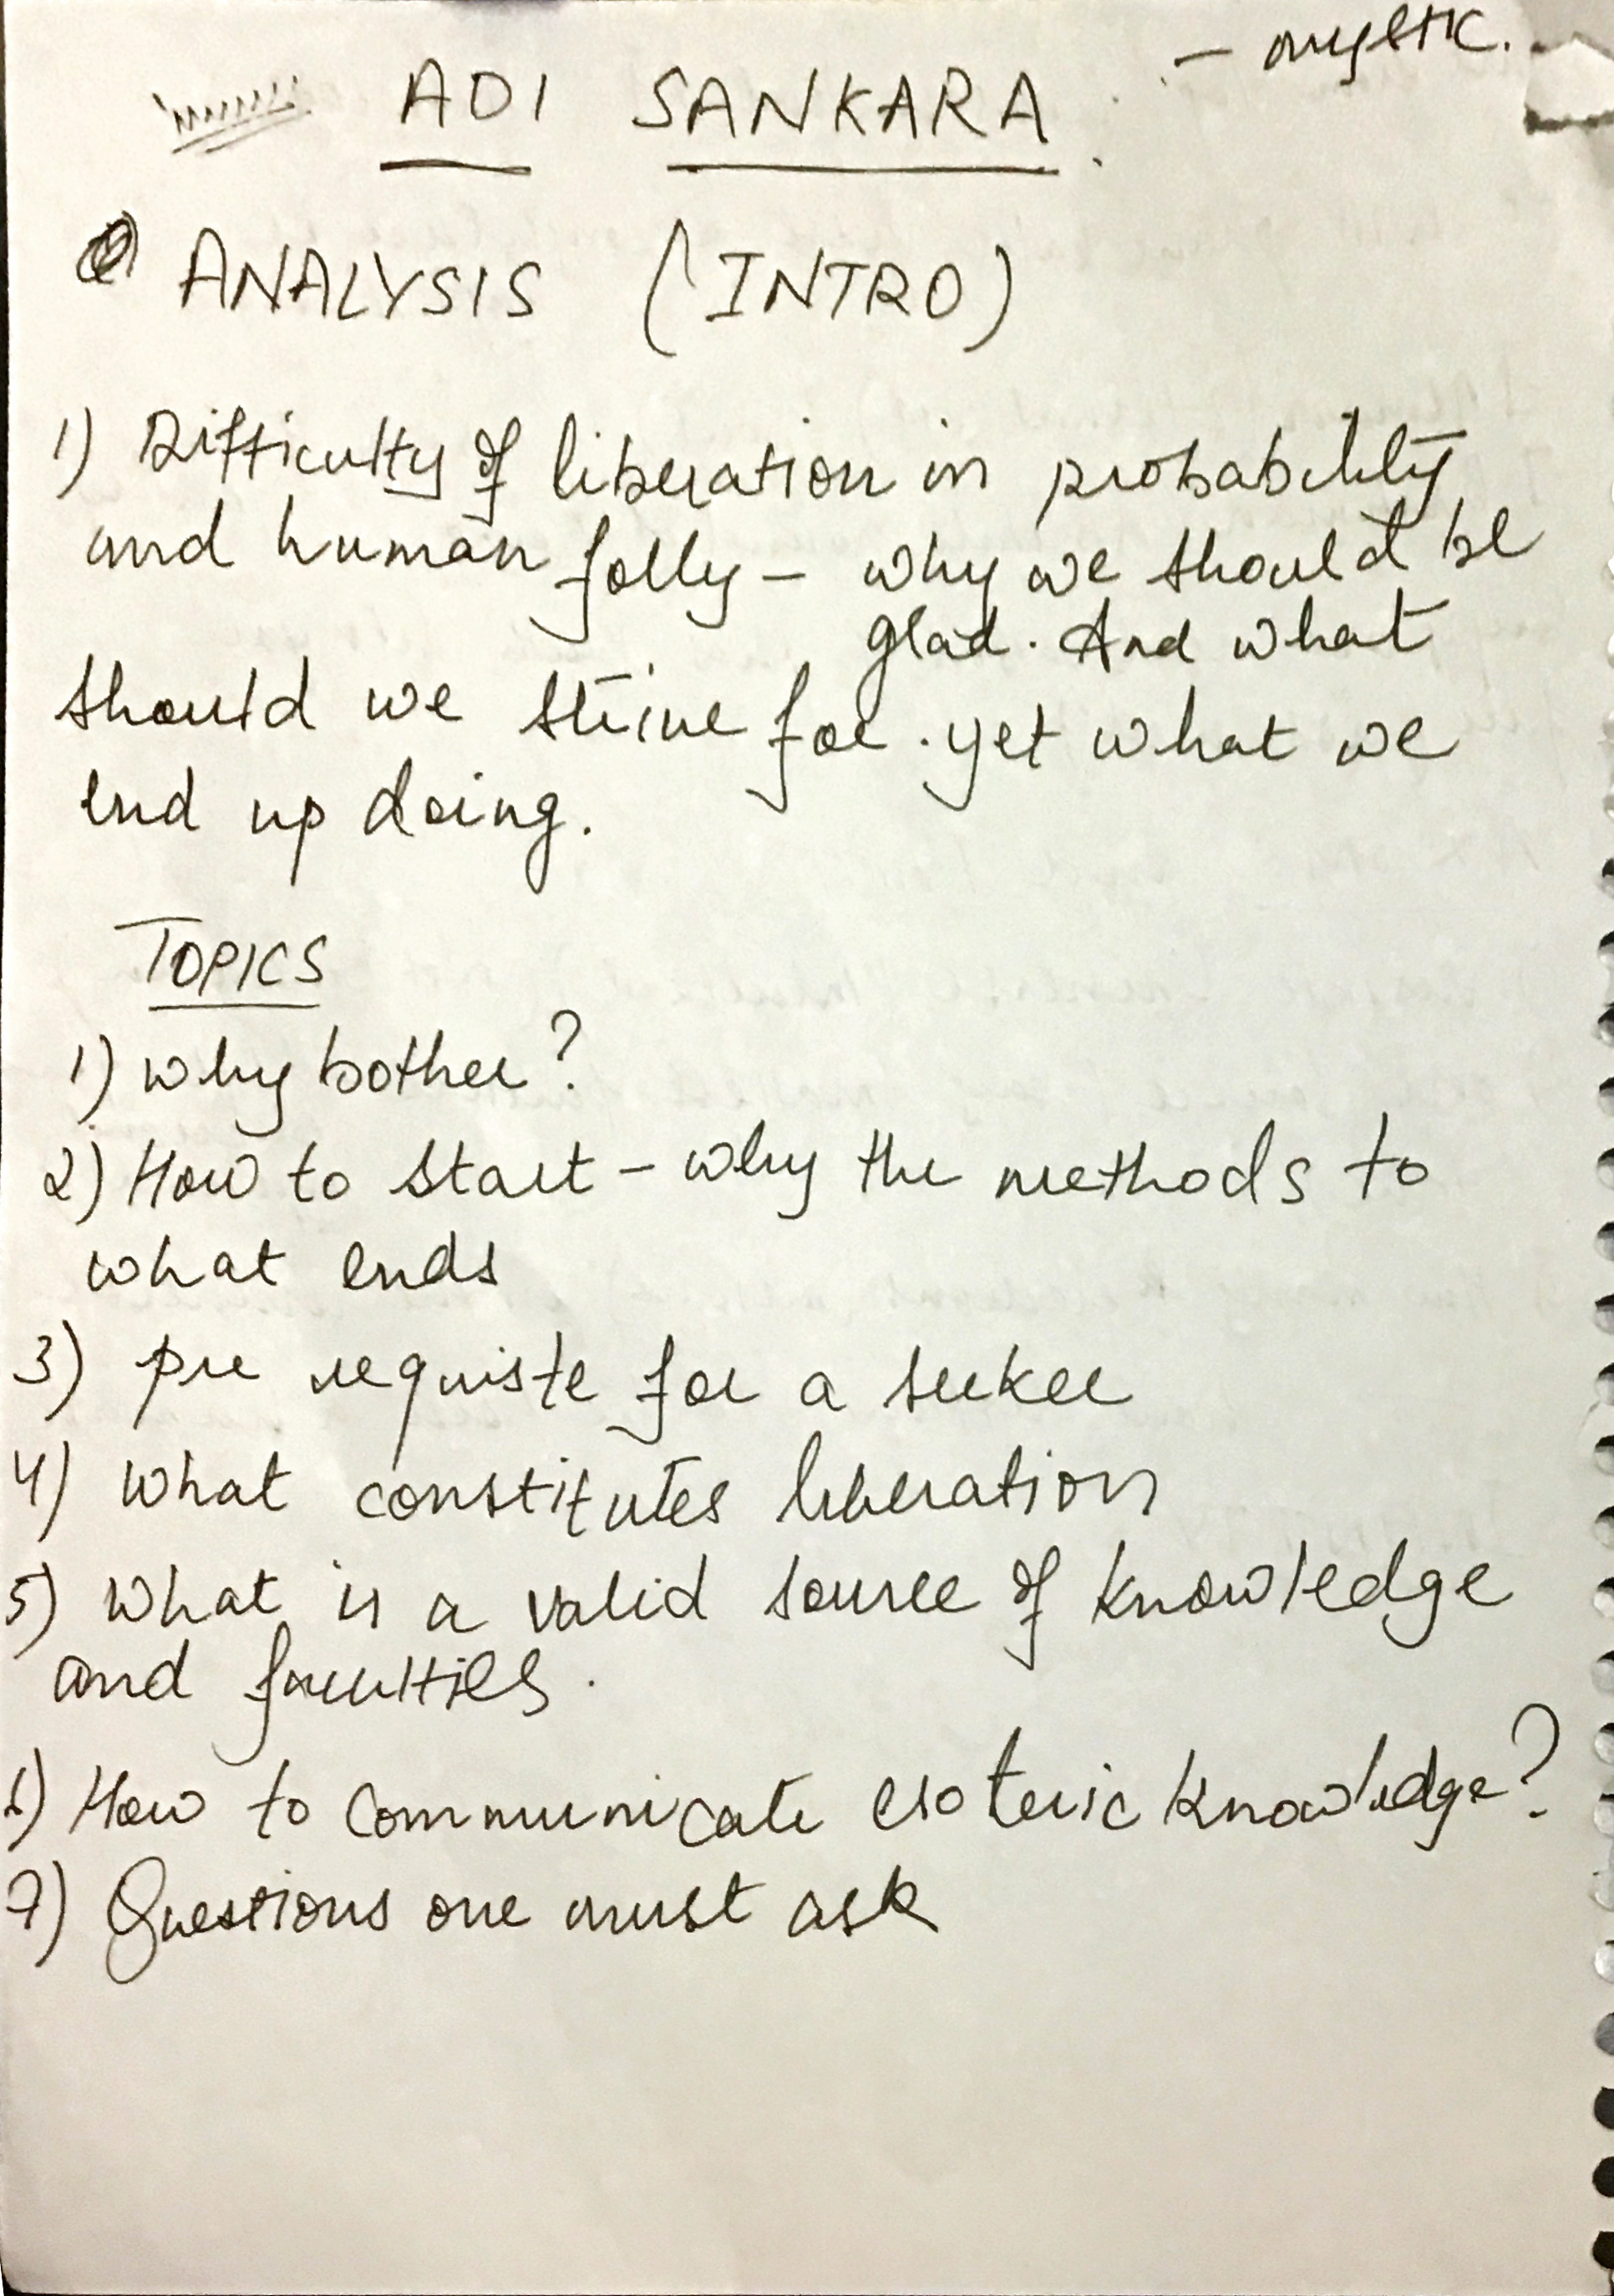 - mystic.
ADI SANKARA
ANALYSIS (INTRO)
1) Difficulty of liberation in probability
and human folly - why we should be
glad. And what
should we strive for. yet what we
end up doing.
TOPICS
1) why bother?
2) How to start - why the methods to
what ends
3) pre requiste for a seeker
4) what constitutes liberation
5) what is a valid source of knowledge
and faculties.
6) How to communicate esoteric knowledge?
7) Questions one must ask